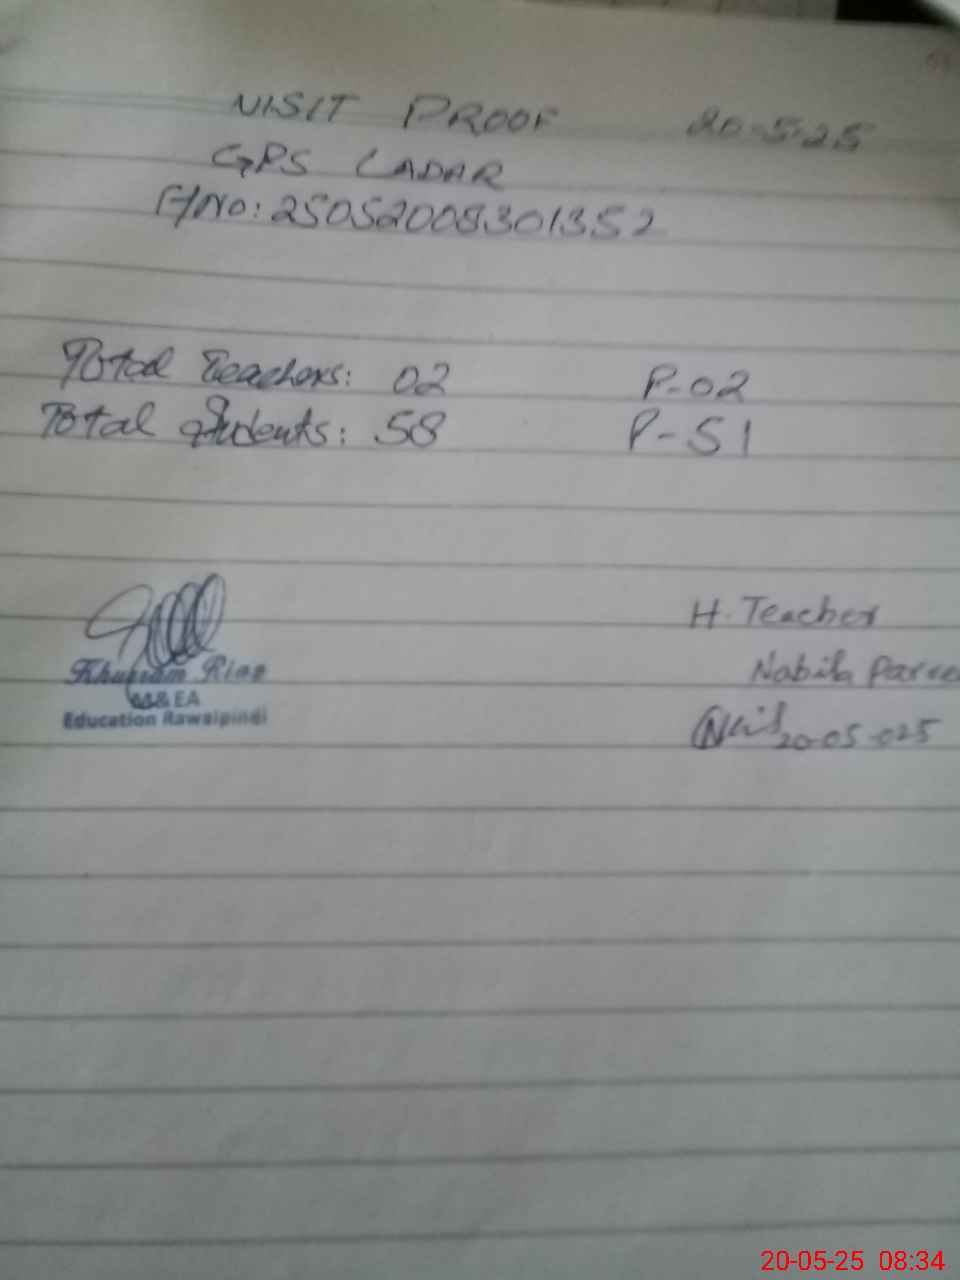 VISIT PROOF 20-5-25
GPS LADAR
F/No: 25052008301352
Total Teachers: 02 P-02
Total Students: 58 P-51
H. Teacher
Khurram Riaz Nabila
M&EA
Education Rawalpindi 20-05-025
20-05-25 08:34